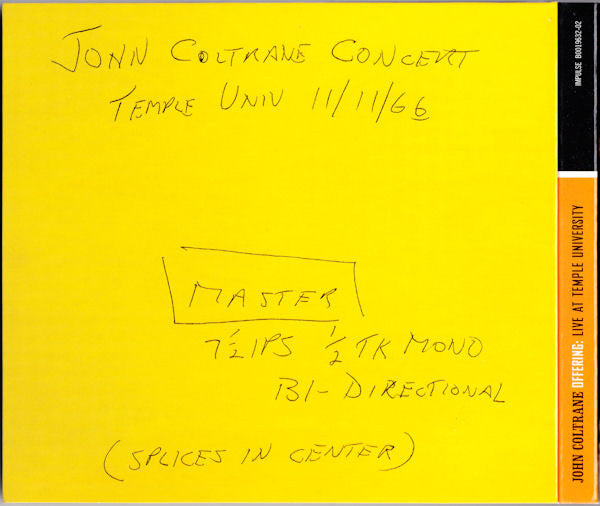 JOHN COLTRANE CONCERT
TEMPLE UNIV 11/11/66
MASTER
7 1/2 IPS 1/2 TK MONO
BI-DIRECTIONAL
(SPLICES IN CENTER)
JOHN COLTRANE OFFERING: LIVE AT TEMPLE UNIVERSITY
IMPULSE B0019632-02